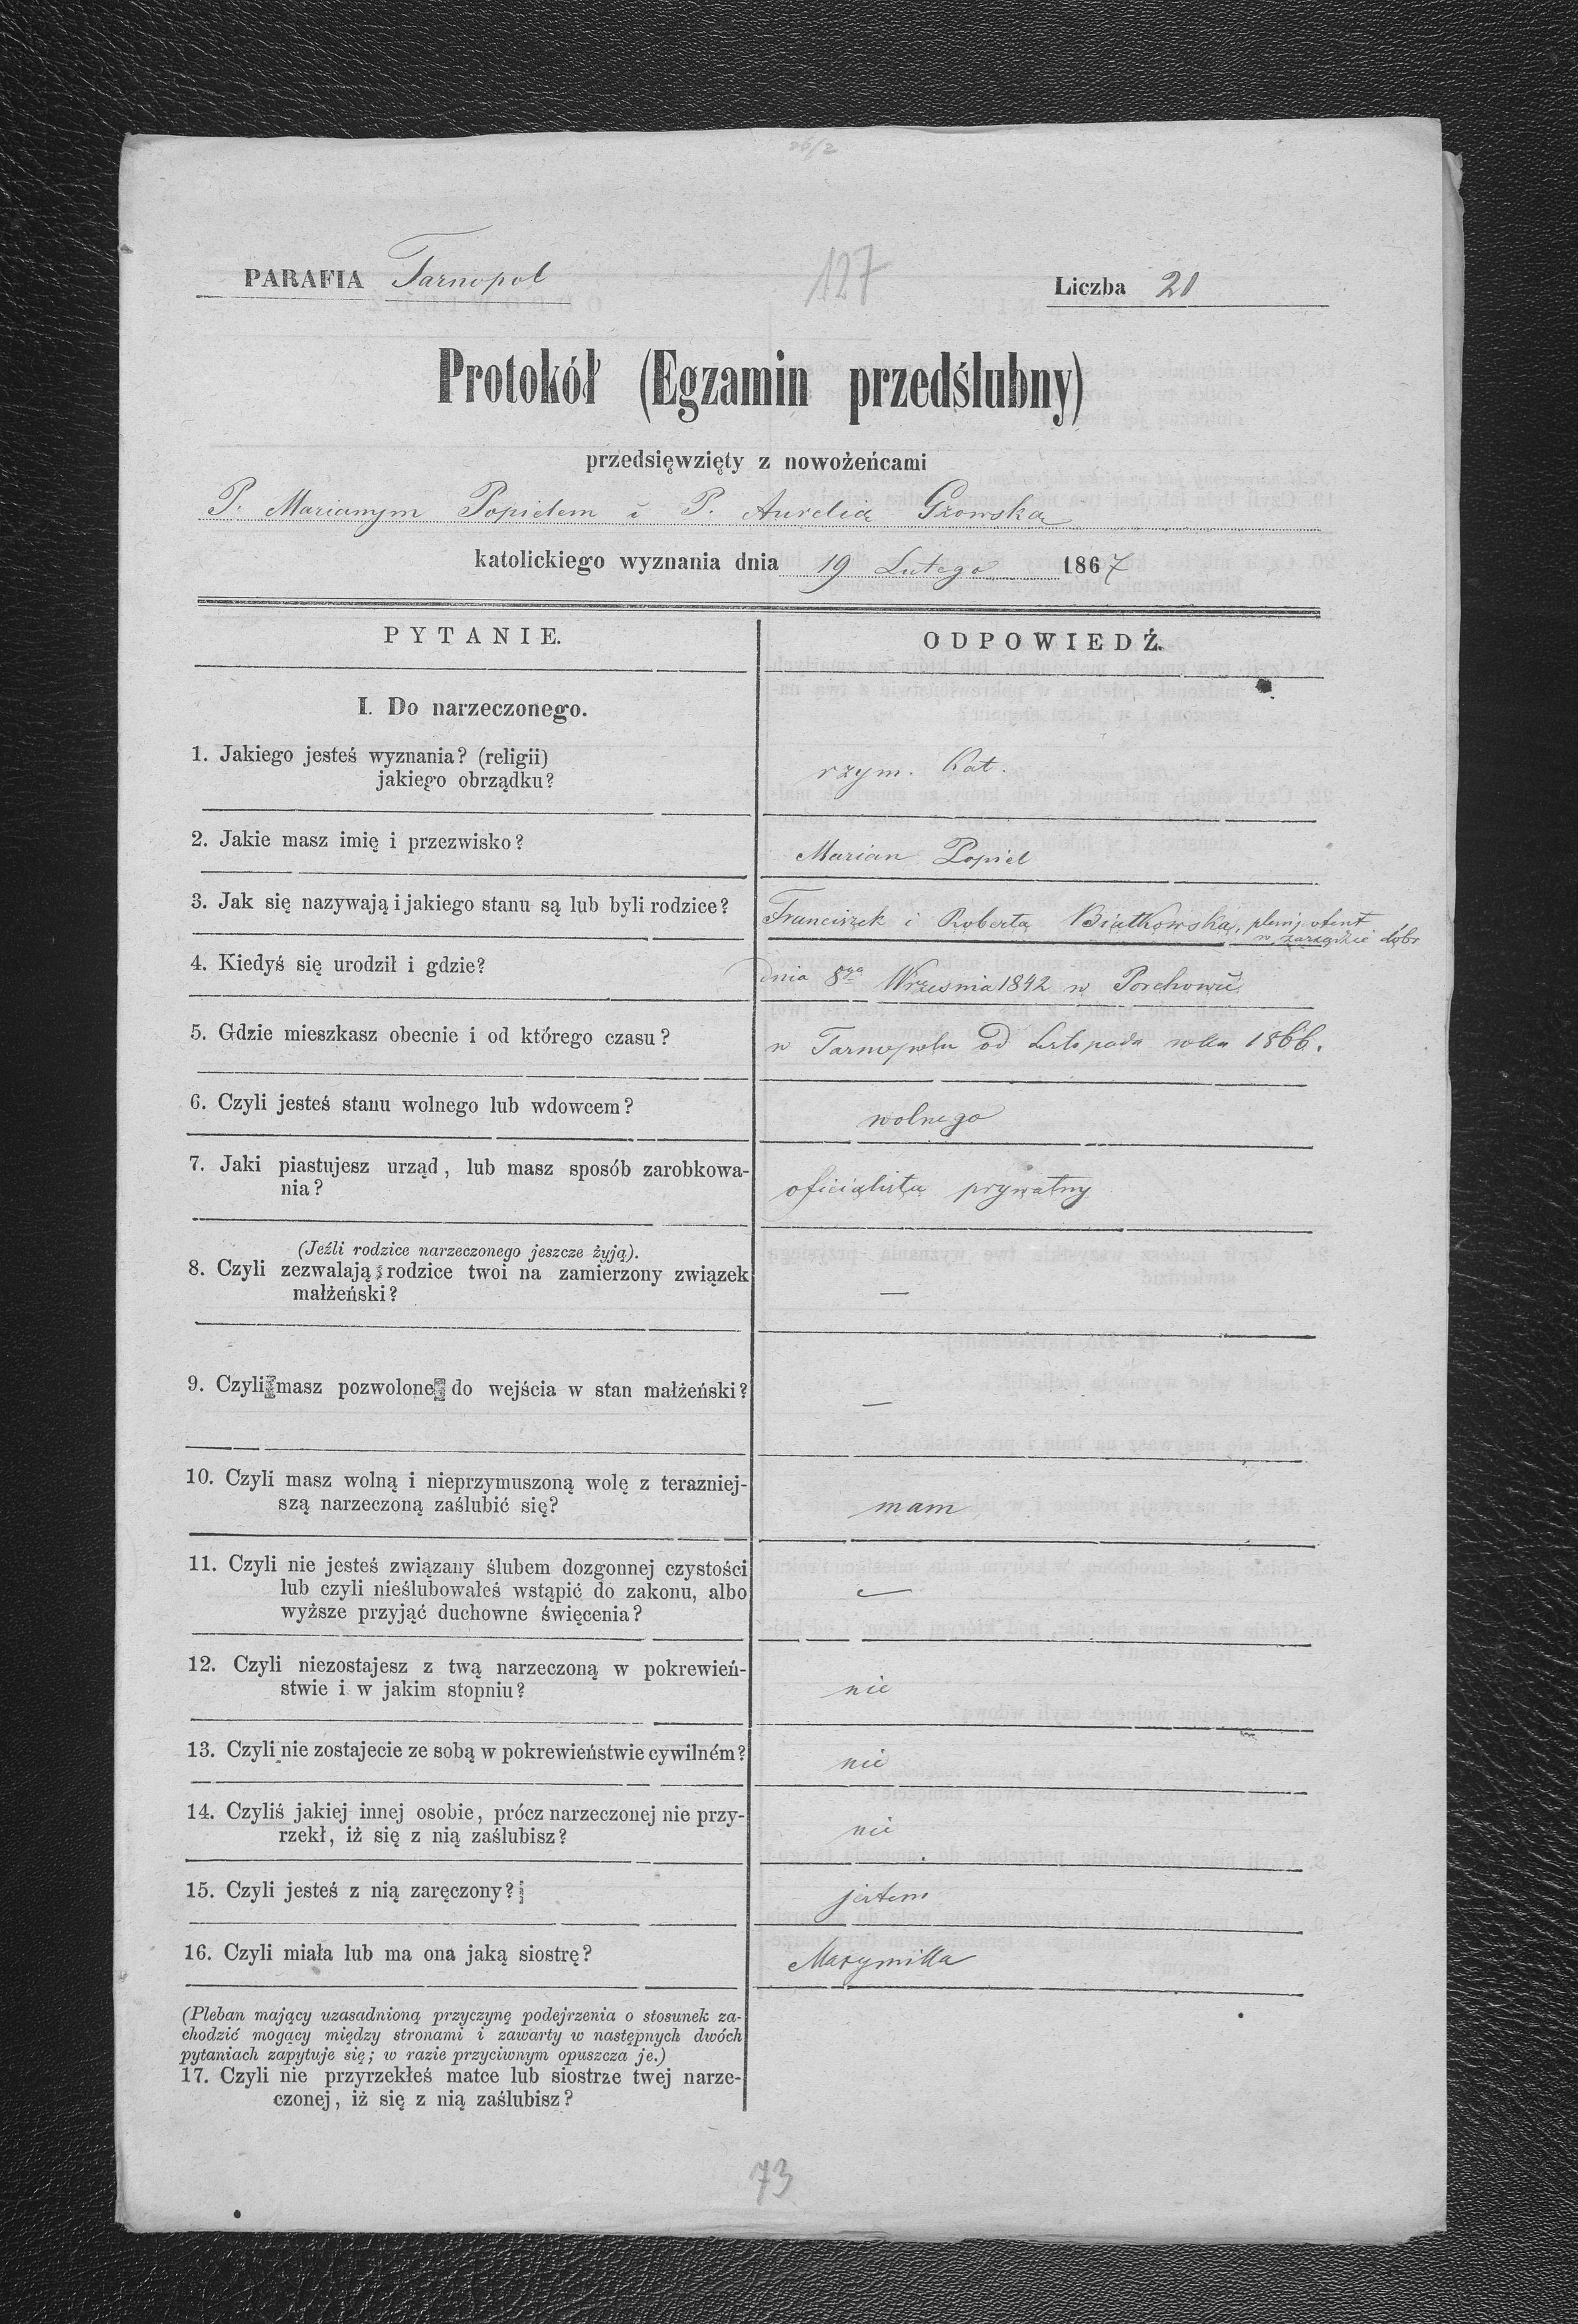 26/2
PARAFIA Tarnopol
127
Liczba 21
Protokół (Egzamin przedślubny)
przedsięwzięty z nowożeńcami
P. Marianym Popielem i P. Aurelią Gzowską
katolickiego wyznania dnia 19 Lutego 1867
PYTANIE.
ODPOWIEDŹ.
I. Do narzeczonego.
1. Jakiego jesteś wyznania? (religii)
jakiego obrządku?
rzym. Kat.
2. Jakie masz imię i przezwisko?
Marian Popiel
3. Jak się nazywają i jakiego stanu są lub byli rodzice?
Franciszek i Roberta Białkowska, plenipotent
w zarządzie dóbr
4. Kiedyś się urodził i gdzie?
dnia 8go Września 1842 w Porchowie
5. Gdzie mieszkasz obecnie i od którego czasu?
w Tarnopolu od Listopada roku 1866.
6. Czyli jesteś stanu wolnego lub wdowcem?
wolnego
7. Jaki piastujesz urząd, lub masz sposób zarobkowa-
nia?
oficialista prywatny
(Jeźli rodzice narzeczonego jeszcze żyją).
8. Czyli zezwalają rodzice twoi na zamierzony związek
małżeński?
—
9. Czyli masz pozwolone do wejścia w stan małżeński?
—
10. Czyli masz wolną i nieprzymuszoną wolę z terazniej-
szą narzeczoną zaślubić się?
mam
11. Czyli nie jesteś związany ślubem dozgonnej czystości
lub czyli nieślubowałeś wstąpić do zakonu, albo
wyższe przyjąć duchowne święcenia?
—
12. Czyli niezostajesz z twą narzeczoną w pokrewień-
stwie i w jakim stopniu?
nie
13. Czyli nie zostajecie ze sobą w pokrewieństwie cywilném?
nie
14. Czyliś jakiej innej osobie, prócz narzeczonej nie przy-
rzekł, iż się z nią zaślubisz?
nie
15. Czyli jesteś z nią zaręczony?
jestem
16. Czyli miała lub ma ona jaką siostrę?
Maxymilla
(Pleban mający uzasadnioną przyczynę podejrzenia o stosunek za-
chodzić mogący między stronami i zawarty w następnych dwóch
pytaniach zapytuje się; w razie przyciwnym opuszcza je.)
17. Czyli nie przyrzekłeś matce lub siostrze twej narze-
czonej, iż się z nią zaślubisz?
73